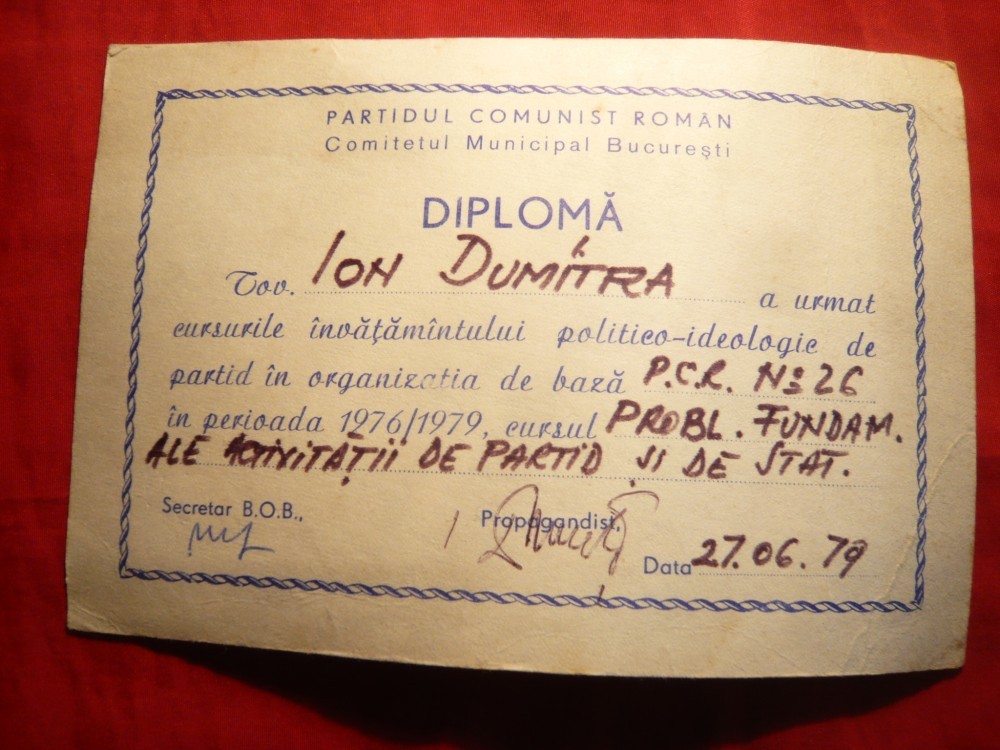 PARTIDUL COMUNIST ROMÂN
Comitetul Municipal Bucureşti
DIPLOMĂ
Tov. ION DUMITRA a urmat
cursurile învăţămîntului politico-ideologic de
partid în organizatia de bază P.C.R. No 26
în perioada 1976/1979, cursul PROBL. FUNDAM.
ALE ACTIVITĂŢII DE PARTID ŞI DE STAT.
Secretar B.O.B., Propagandist,
Data 27.06.79